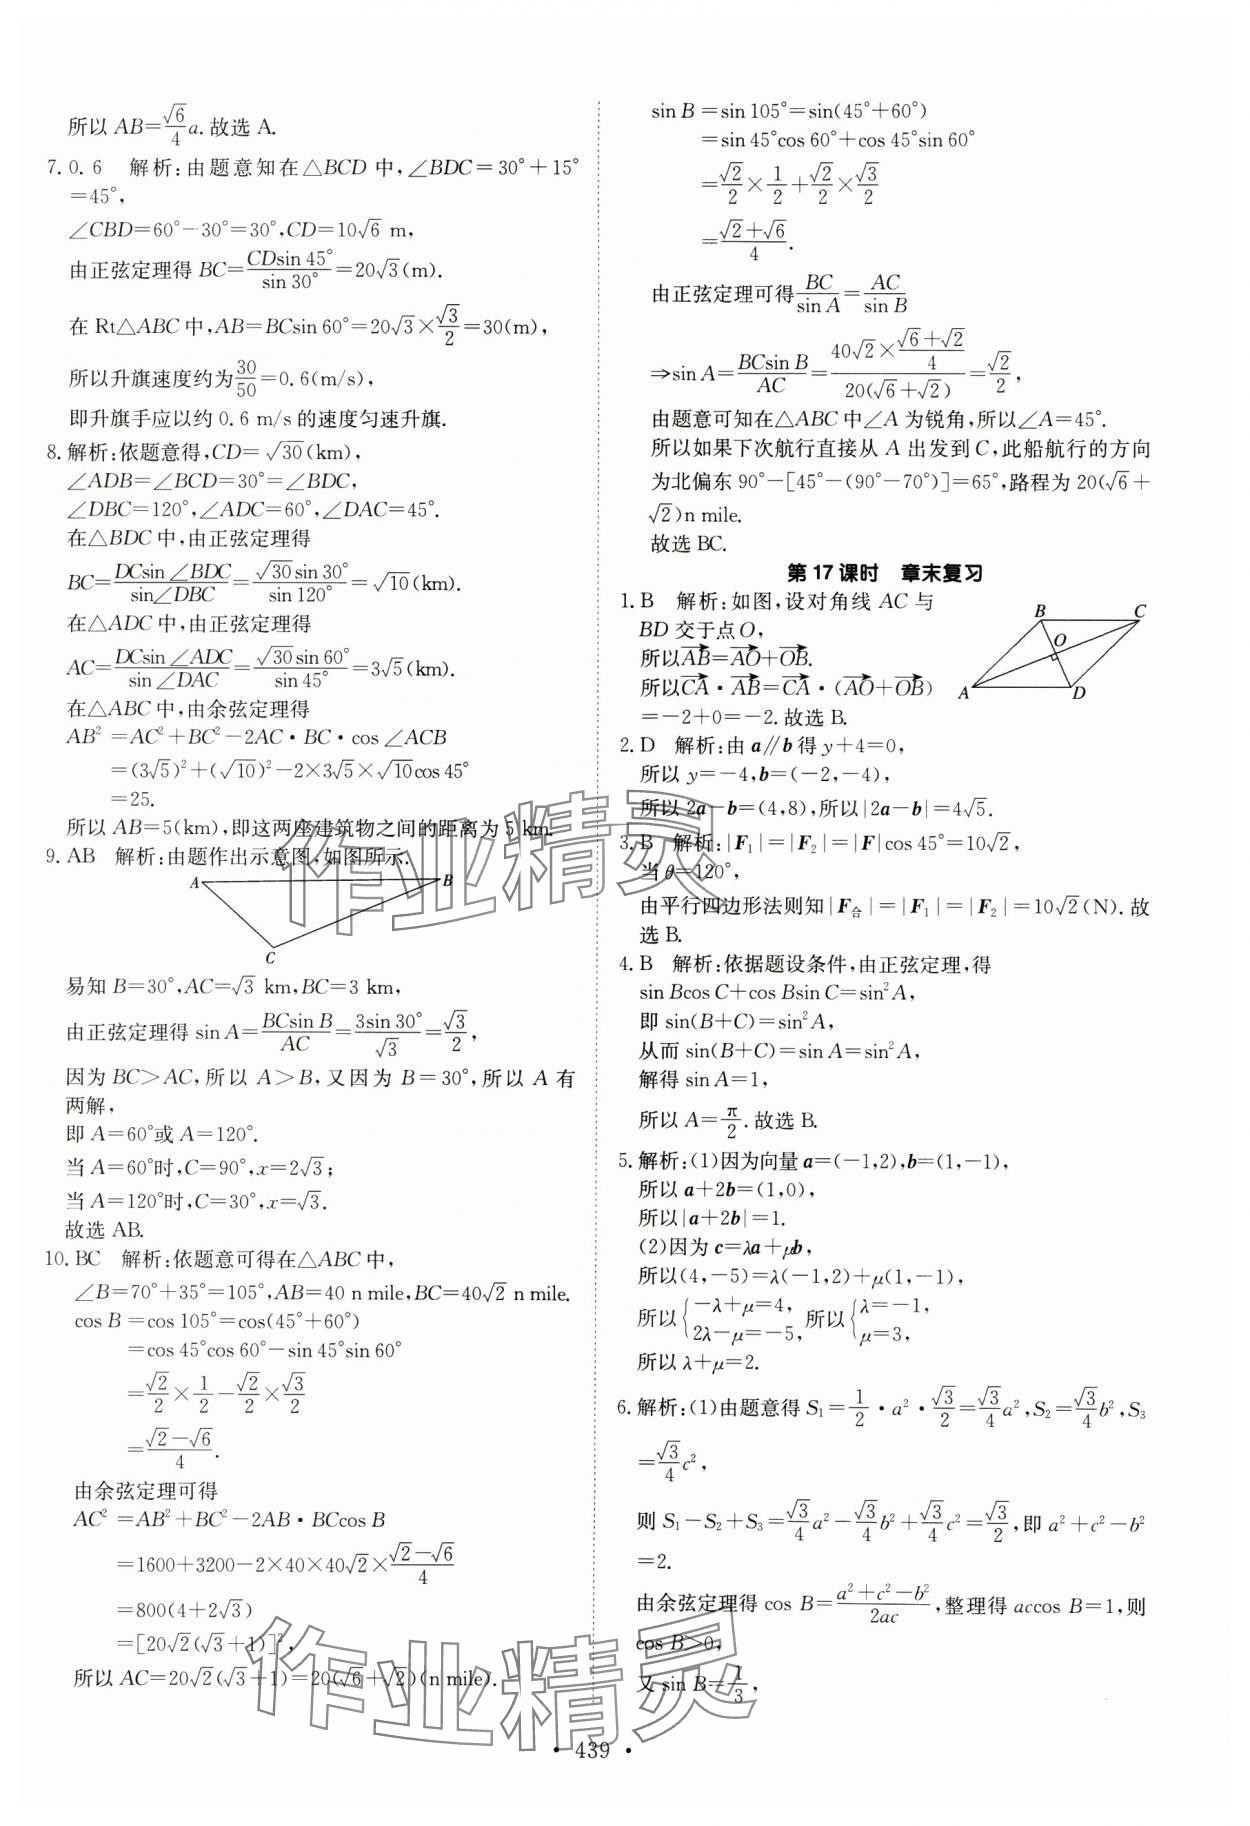 所以 AB=√6/4 a.故选 A.
7. 0. 6 解析:由题意知在△BCD 中,∠BDC=30°+15°
=45°,
∠CBD=60°-30°=30°,CD=10√6 m,
由正弦定理得 BC=CDsin 45°/sin 30°=20√3(m).
在 Rt△ABC 中,AB=BCsin 60°=20√3×√3/2=30(m),
所以升旗速度约为30/50=0.6(m/s),
即升旗手应以约 0.6 m/s 的速度匀速升旗.
8. 解析:依题意得,CD=√30(km),
∠ADB=∠BCD=30°=∠BDC,
∠DBC=120°,∠ADC=60°,∠DAC=45°.
在△BDC 中,由正弦定理得
BC=DCsin∠BDC/sin∠DBC=√30sin 30°/sin 120°=√10(km).
在△ADC 中,由正弦定理得
AC=DCsin∠ADC/sin∠DAC=√30sin 60°/sin 45°=3√5(km).
在△ABC 中,由余弦定理得
AB²=AC²+BC²-2AC·BC·cos∠ACB
=(3√5)²+(√10)²-2×3√5×√10cos 45°
=25.
所以 AB=5(km),即这两座建筑物之间的距离为 5 km.
9. AB 解析:由题作出示意图,如图所示.
A
B
C
易知 B=30°,AC=√3 km,BC=3 km,
由正弦定理得 sin A=BCsin B/AC=3sin 30°/√3=√3/2,
因为 BC>AC,所以 A>B,又因为 B=30°,所以 A 有
两解,
即 A=60°或 A=120°.
当 A=60°时,C=90°,x=2√3;
当 A=120°时,C=30°,x=√3.
故选 AB.
10. BC 解析:依题意可得在△ABC 中,
∠B=70°+35°=105°,AB=40 n mile,BC=40√2 n mile.
cos B=cos 105°=cos(45°+60°)
=cos 45°cos 60°-sin 45°sin 60°
=√2/2×1/2-√2/2×√3/2
=(√2-√6)/4.
由余弦定理可得
AC²=AB²+BC²-2AB·BCcos B
=1600+3200-2×40×40√2×(√2-√6)/4
=800(4+2√3)
=[20√2(√3+1)]²,
所以 AC=20√2(√3+1)=20(√6+√2)(n mile).
sin B=sin 105°=sin(45°+60°)
=sin 45°cos 60°+cos 45°sin 60°
=√2/2×1/2+√2/2×√3/2
=(√2+√6)/4.
由正弦定理可得BC/sin A=AC/sin B
⇒sin A=BCsin B/AC=(40√2×(√6+√2)/4)/(20(√6+√2))=√2/2,
由题意可知在△ABC 中∠A 为锐角,所以∠A=45°.
所以如果下次航行直接从 A 出发到 C,此船航行的方向
为北偏东 90°-[45°-(90°-70°)]=65°,路程为 20(√6+
√2)n mile.
故选 BC.
第 17 课时 章末复习
1. B 解析:如图,设对角线 AC 与
BD 交于点 O,
所以AB→=AO→+OB→.
所以CA→·AB→=CA→·(AO→+OB→)
=-2+0=-2.故选 B.
B
C
O
A
D
2. D 解析:由 a∥b 得 y+4=0,
所以 y=-4,b=(-2,-4),
所以 2a-b=(4,8),所以|2a-b|=4√5.
3. B 解析:|F₁|=|F₂|=|F|cos 45°=10√2,
当 θ=120°,
由平行四边形法则知|F合|=|F₁|=|F₂|=10√2(N).故
选 B.
4. B 解析:依据题设条件,由正弦定理,得
sin Bcos C+cos Bsin C=sin²A,
即 sin(B+C)=sin²A,
从而 sin(B+C)=sin A=sin²A,
解得 sin A=1,
所以 A=π/2.故选 B.
5. 解析:(1)因为向量 a=(-1,2),b=(1,-1),
所以 a+2b=(1,0),
所以|a+2b|=1.
(2)因为 c=λa+μb,
所以(4,-5)=λ(-1,2)+μ(1,-1),
所以{-λ+μ=4, 2λ-μ=-5, 所以{λ=-1, μ=3,
所以 λ+μ=2.
6. 解析:(1)由题意得 S₁=1/2·a²·√3/2=√3/4 a²,S₂=√3/4 b²,S₃
=√3/4 c²,
则 S₁-S₂+S₃=√3/4 a²-√3/4 b²+√3/4 c²=√3/2,即 a²+c²-b²
=2.
由余弦定理得 cos B=(a²+c²-b²)/2ac,整理得 accos B=1,则
cos B>0,
又 sin B=1/3,
作业精灵
作业精灵
• 439 •